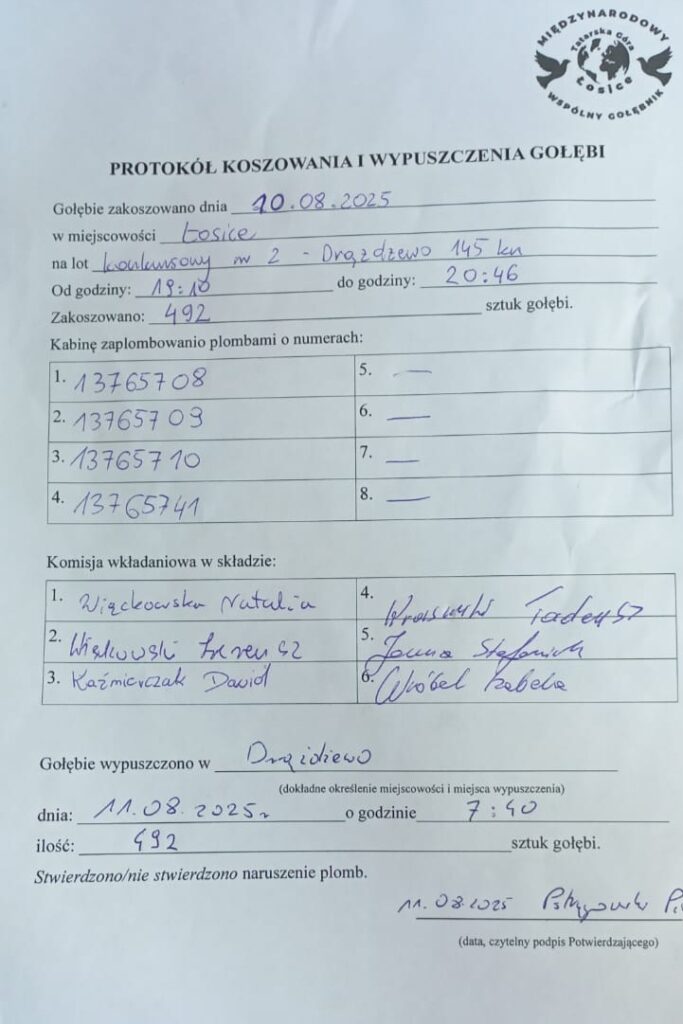 MIĘDZYNARODOWY
Tatarska Góra
Łosice
WSPÓLNY GOŁĘBNIK
PROTOKÓŁ KOSZOWANIA I WYPUSZCZENIA GOŁĘBI
Gołębie zakoszowano dnia 10.08.2025
w miejscowości Łosice
na lot konkursowy nr 2 - Drążdżewo 145 km
Od godziny: 19:10 do godziny: 20:46
Zakoszowano: 492 sztuk gołębi.
Kabinę zaplombowanio plombami o numerach:
1. 13765708 5. —
2. 13765709 6. —
3. 13765710 7. —
4. 13765741 8. —
Komisja wkładaniowa w składzie:
1. Więckowska Natalia 4. Tadeusz
2. Ireneusz 5. Stefaniuk
3. Kaźmierczak Dawid 6. Wróbel Izabela
Gołębie wypuszczono w Drążdżewo
(dokładne określenie miejscowości i miejsca wypuszczenia)
dnia: 11.08.2025r o godzinie 7:40
ilość: 492 sztuk gołębi.
Stwierdzono/nie stwierdzono naruszenie plomb.
11.08.2025
(data, czytelny podpis Potwierdzającego)